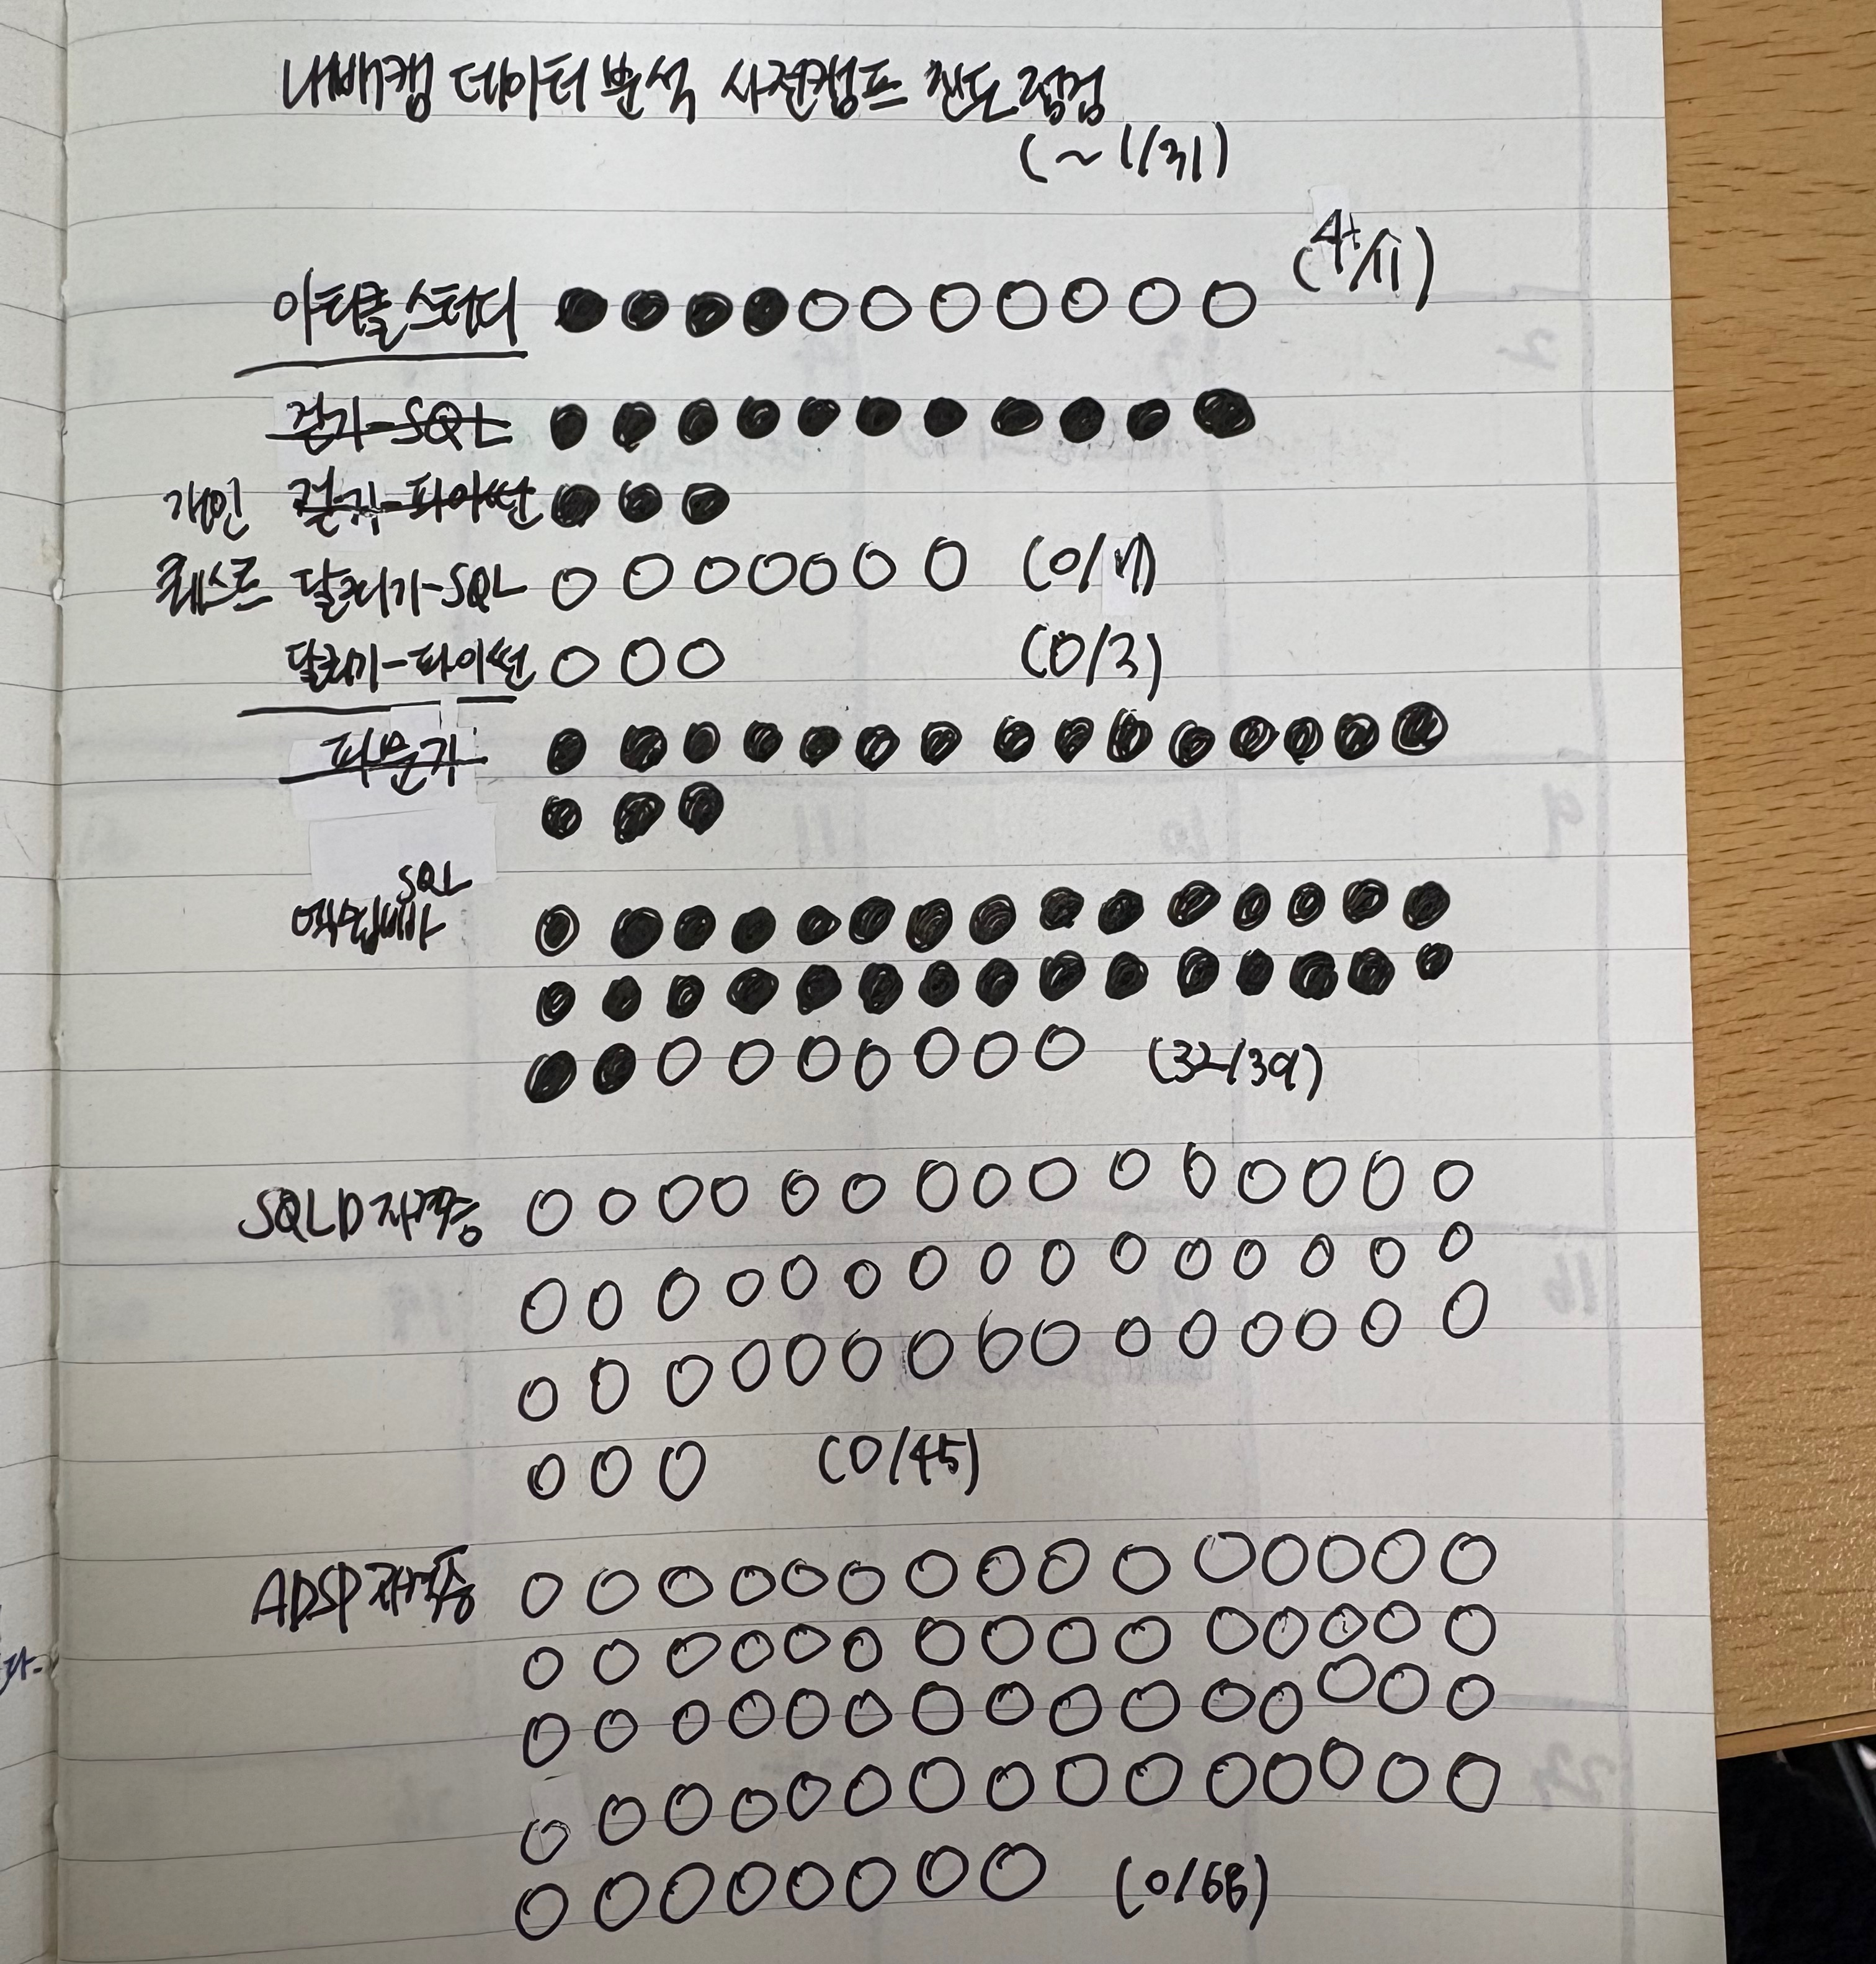 내배캠 데이터 분석 사전캠프 진도 점검
(~1/31)
아티클스터디 (4/11)
걷기-SQL
개인 걷기-파이썬
퀘스트 달리기-SQL (0/7)
달리기-파이썬 (0/3)
SQL
엑셀보다 쉬운
(32/39)
SQLD 자격증
(0/45)
ADSP 자격증
(0/68)